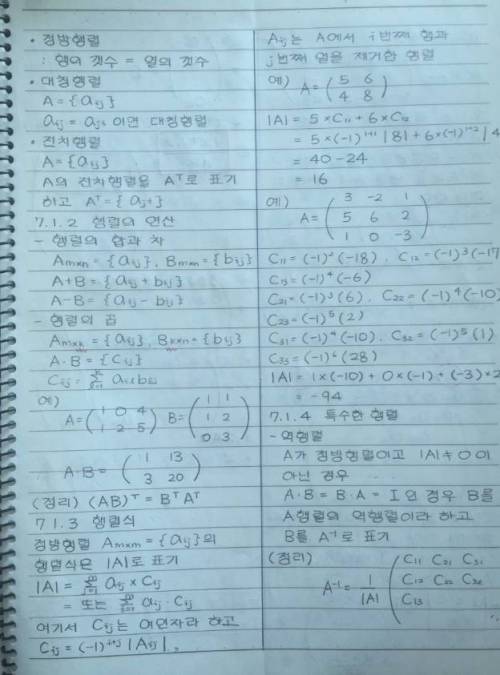 · 정방행렬
: 행의 갯수 = 열의 갯수
· 대칭행렬
A = {aij}
aij = aji 이면 대칭행렬
· 전치행렬
A = {aij}
A의 전치행렬을 Aᵀ로 표기
하고 Aᵀ = {aji}
7.1.2 행렬의 연산
- 행렬의 합과 차
Amxn = {aij}, Bmxn = {bij}
A+B = {aij + bij}
A-B = {aij - bij}
- 행렬의 곱
Amxk = {aij}, Bkxn = {bij}
A·B = {Cij}
Cij = Σ
예)
A = (1 0 4
1 2 5) B = (1 1
1 2
0 3)
A·B = (1 13
3 20)
(정리) (AB)ᵀ = BᵀAᵀ
7.1.3 행렬식
정방행렬 Amxm = {aij}의
행렬식은 |A|로 표기
|A| = Σ aij × Cij
= 또는 Σ aij · Cij
여기서 Cij는 여인자라 하고
Cij = (-1)ⁱ⁺ʲ |Aij|,
Aij는 A에서 i번째 행과
j번째 열을 제거한 행렬
예) A = (5 6
4 8)
|A| = 5 × C11 + 6 × C12
= 5 × (-1)¹⁺¹ |8| + 6 × (-1)¹⁺² |4
= 40 - 24
= 16
예)
A = (3 -2 1
5 6 2
1 0 -3)
C11 = (-1)²(-18), C12 = (-1)³(-17
C13 = (-1)⁴(-6)
C21 = (-1)³(6), C22 = (-1)⁴(-10)
C23 = (-1)⁵(2)
C31 = (-1)⁴(-10), C32 = (-1)⁵(1)
C33 = (-1)⁶(28)
|A| = 1×(-10) + 0×(-1) + (-3)×2
= -94
7.1.4 특수한 행렬
- 역행렬
A가 정방행렬이고 |A| ≠ 0 이
아닌 경우
A·B = B·A = I인 경우 B를
A행렬의 역행렬이라 하고
B를 A⁻¹로 표기
(정리)
A⁻¹ = 1/|A| (C11 C21 C31
C12 C22 C32
C13